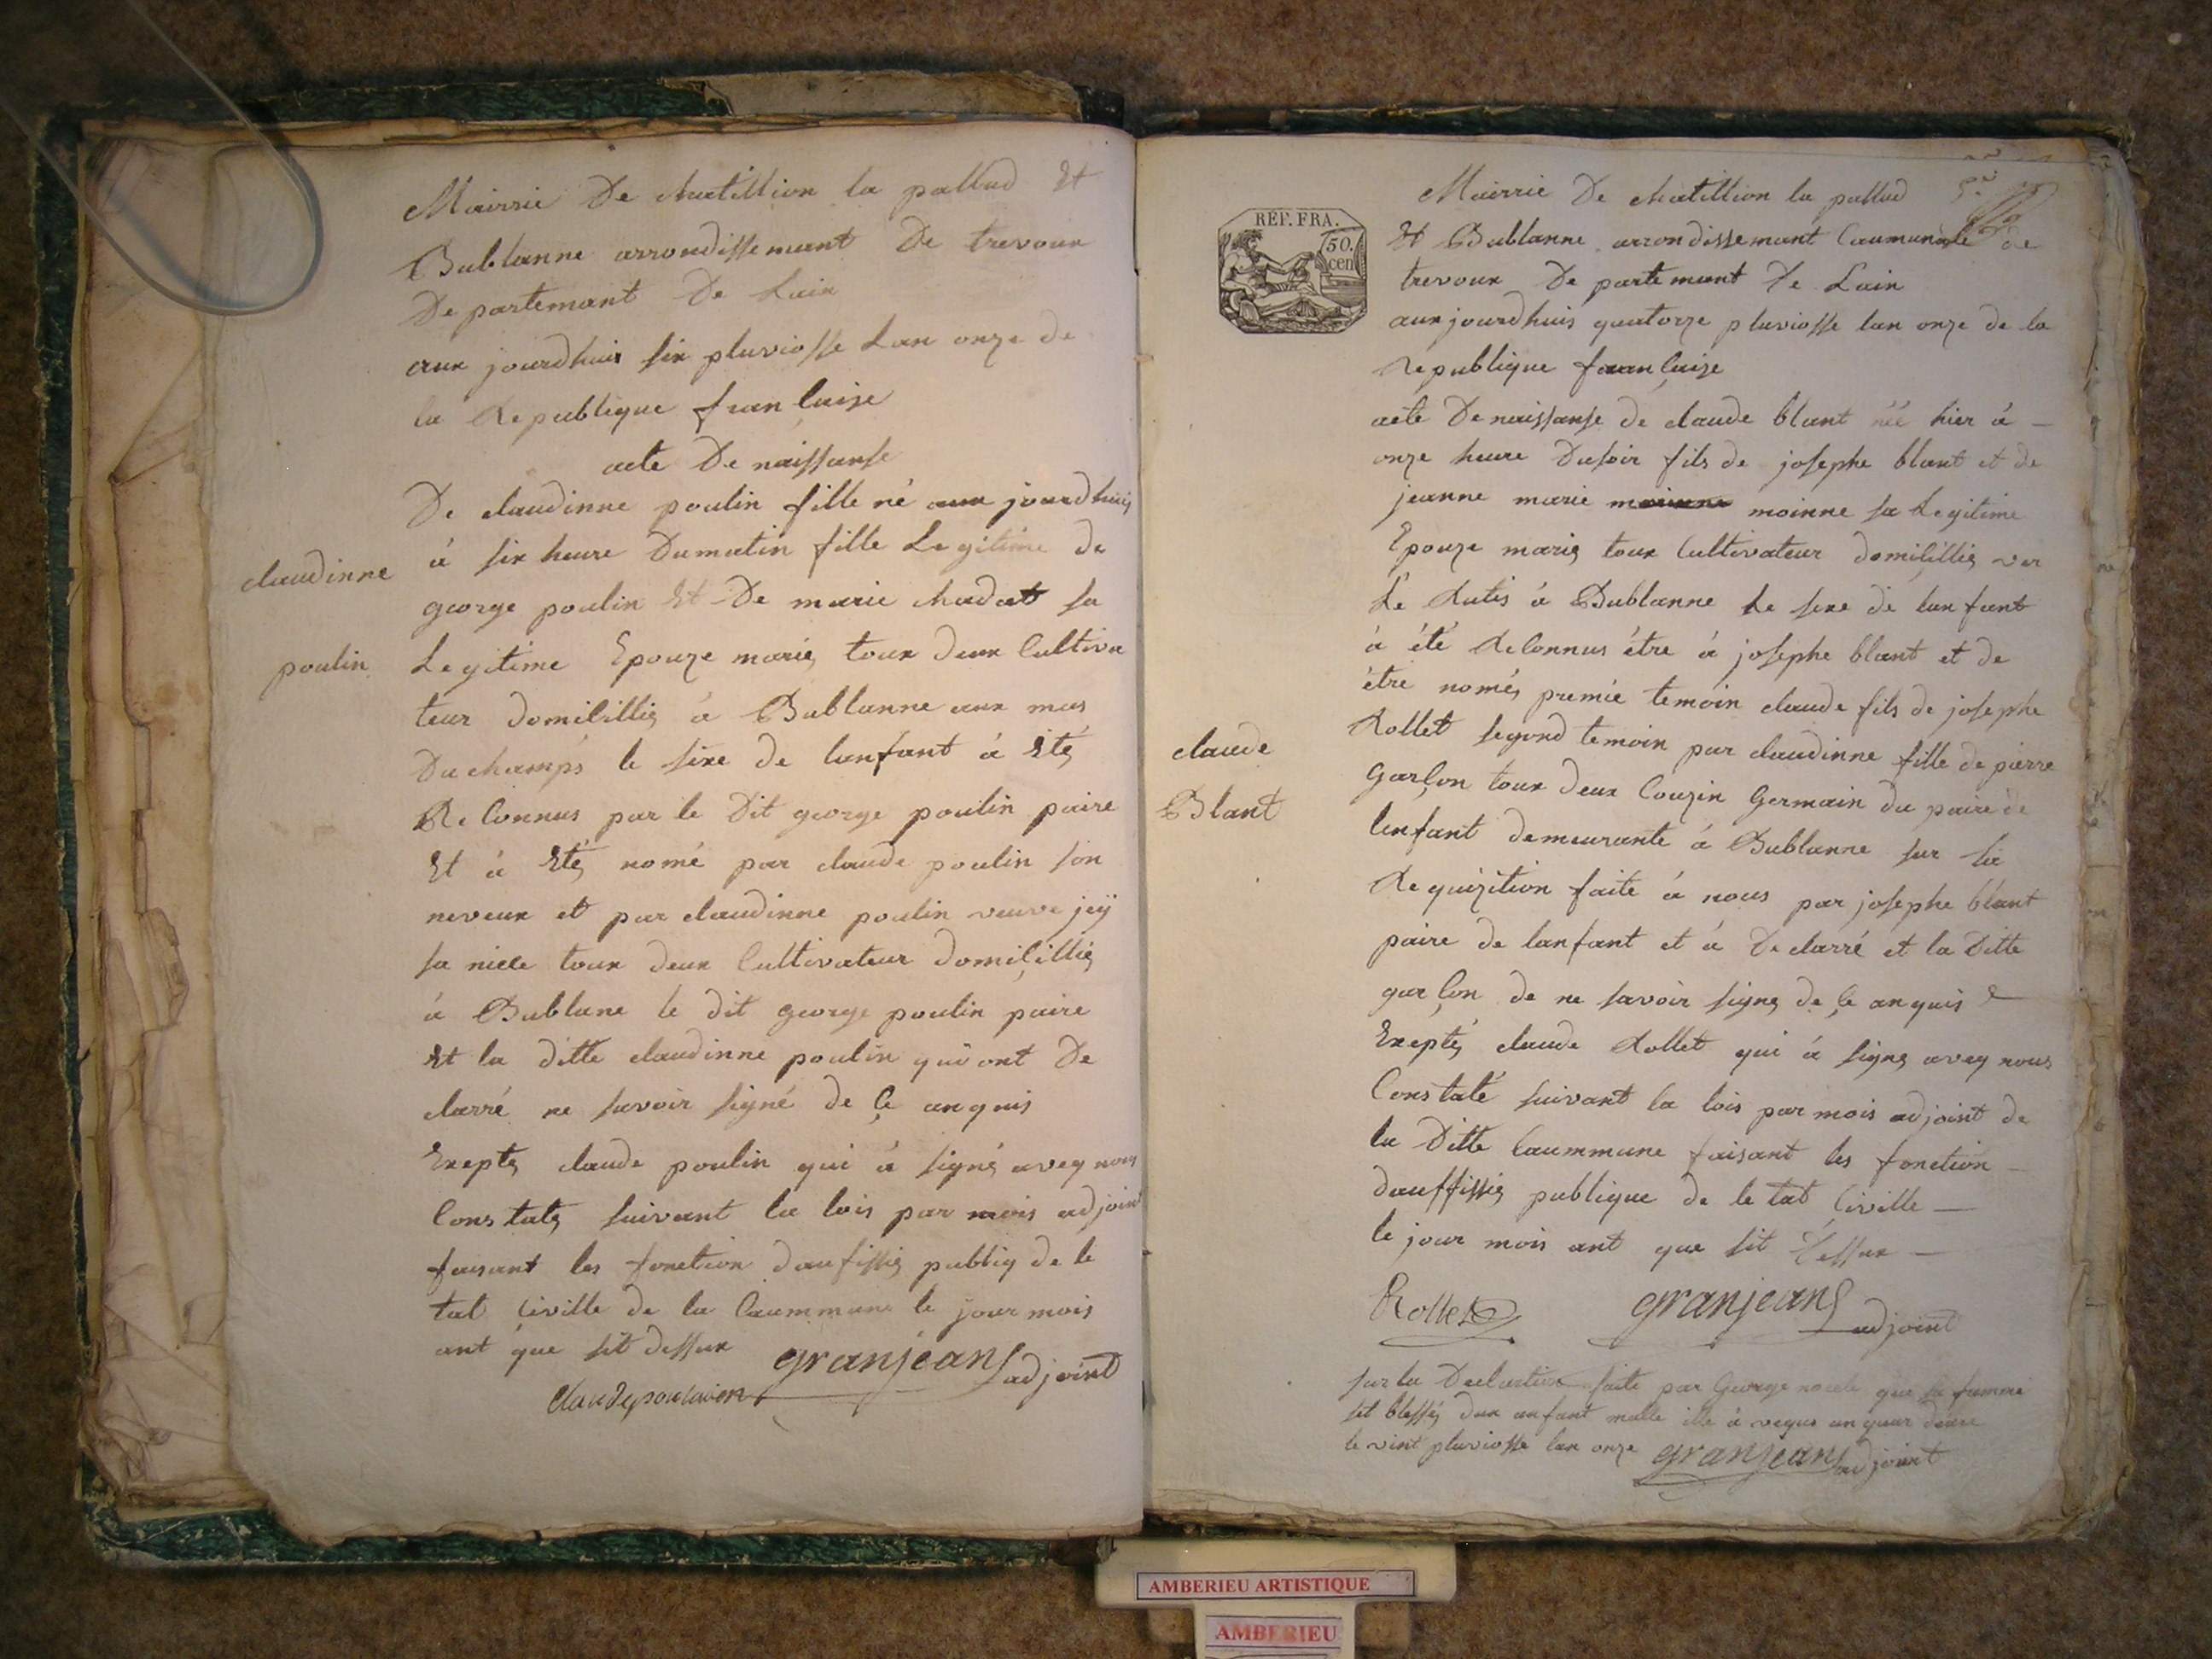 Mairrie De chatillion la pallud Et
Bublanne arrondissemant De trevoux
Departemant De Lain
aux jourdhuis six pluviosse Lan onze de
la Republique française
acte De naissanse
De claudinne poulin fille né aux jourdhuis
claudinne
à six heure Dumatin fille Legitime de
george poulin Et De marie chadat sa
poulin
Legitime Epouze mariés toux deux Cultiva
teur domiçilliés à Bublanne aux mas
Duchamps le sexe de lanfant à Etés
ReConnus par le Dit george poulin paire
Et à Etés nomé par claude poulin son
neveux et par claudinne poulin veuve jeÿ
sa niece toux deux Cultivateur domiçilliés
à Bublane le dit george poulin paire
Et la ditte claudinne poulin qui ont De
clarré ne savoir signé de Çe anquis
Exeptés claude poulin qui à signé aveq nous
Constatés suivant la lois par mois adjoint
faisant les fonction daufissiés publiq de le
tat Çiville de la Caummune le jour mois
ant que sit dessux
granjean adjoint
claudepoulain
Mairrie De chatillion la pallud
RÉP. FRA.
50.
cen
Et Bublanne arrondissemant Caumunale de
trevoux Departemant De Lain
aux jourdhuis quatorze pluviosse lan onze de la
Republique françaize
acte Denaissanse de claude blant néé hier à
onze heure Dusoir fils de josephe blant et de
jeanne marie moinne sa Legitime
Epouze mariés toux Cultivateur domiçilliés ver
Le Rutis à Bublanne Le sexe de lanfant
à été ReConnus être à josephe blant et de
être només premie temoin claude fils de josephe
claude
Rollet segond temoin par claudinne fille de pierre
Garçon toux deux Couzin Germain du paire de
Blant
lenfant demeurante à Bublanne sur sa
Requizition faite à nous par josephe blant
paire de lanfant et à Declarré et la Ditte
garçon de ne savoir signé de çe anquis
Exeptés claude Rollet qui à signé aveq nous
Constaté suivant la lois par mois adjoint de
la Ditte Caummune faisant les fonction
dauffissiés publique de le tat Çiville
le jour mois ant que sit dessux
Rollet
granjean adjoint
sur la Declartion faite par George que sa famme
set blessés dun anfant malle ille à vequs un quar deure
le vint pluviosse lan onze granjean adjoint
AMBERIEU ARTISTIQUE
AMBERIEU